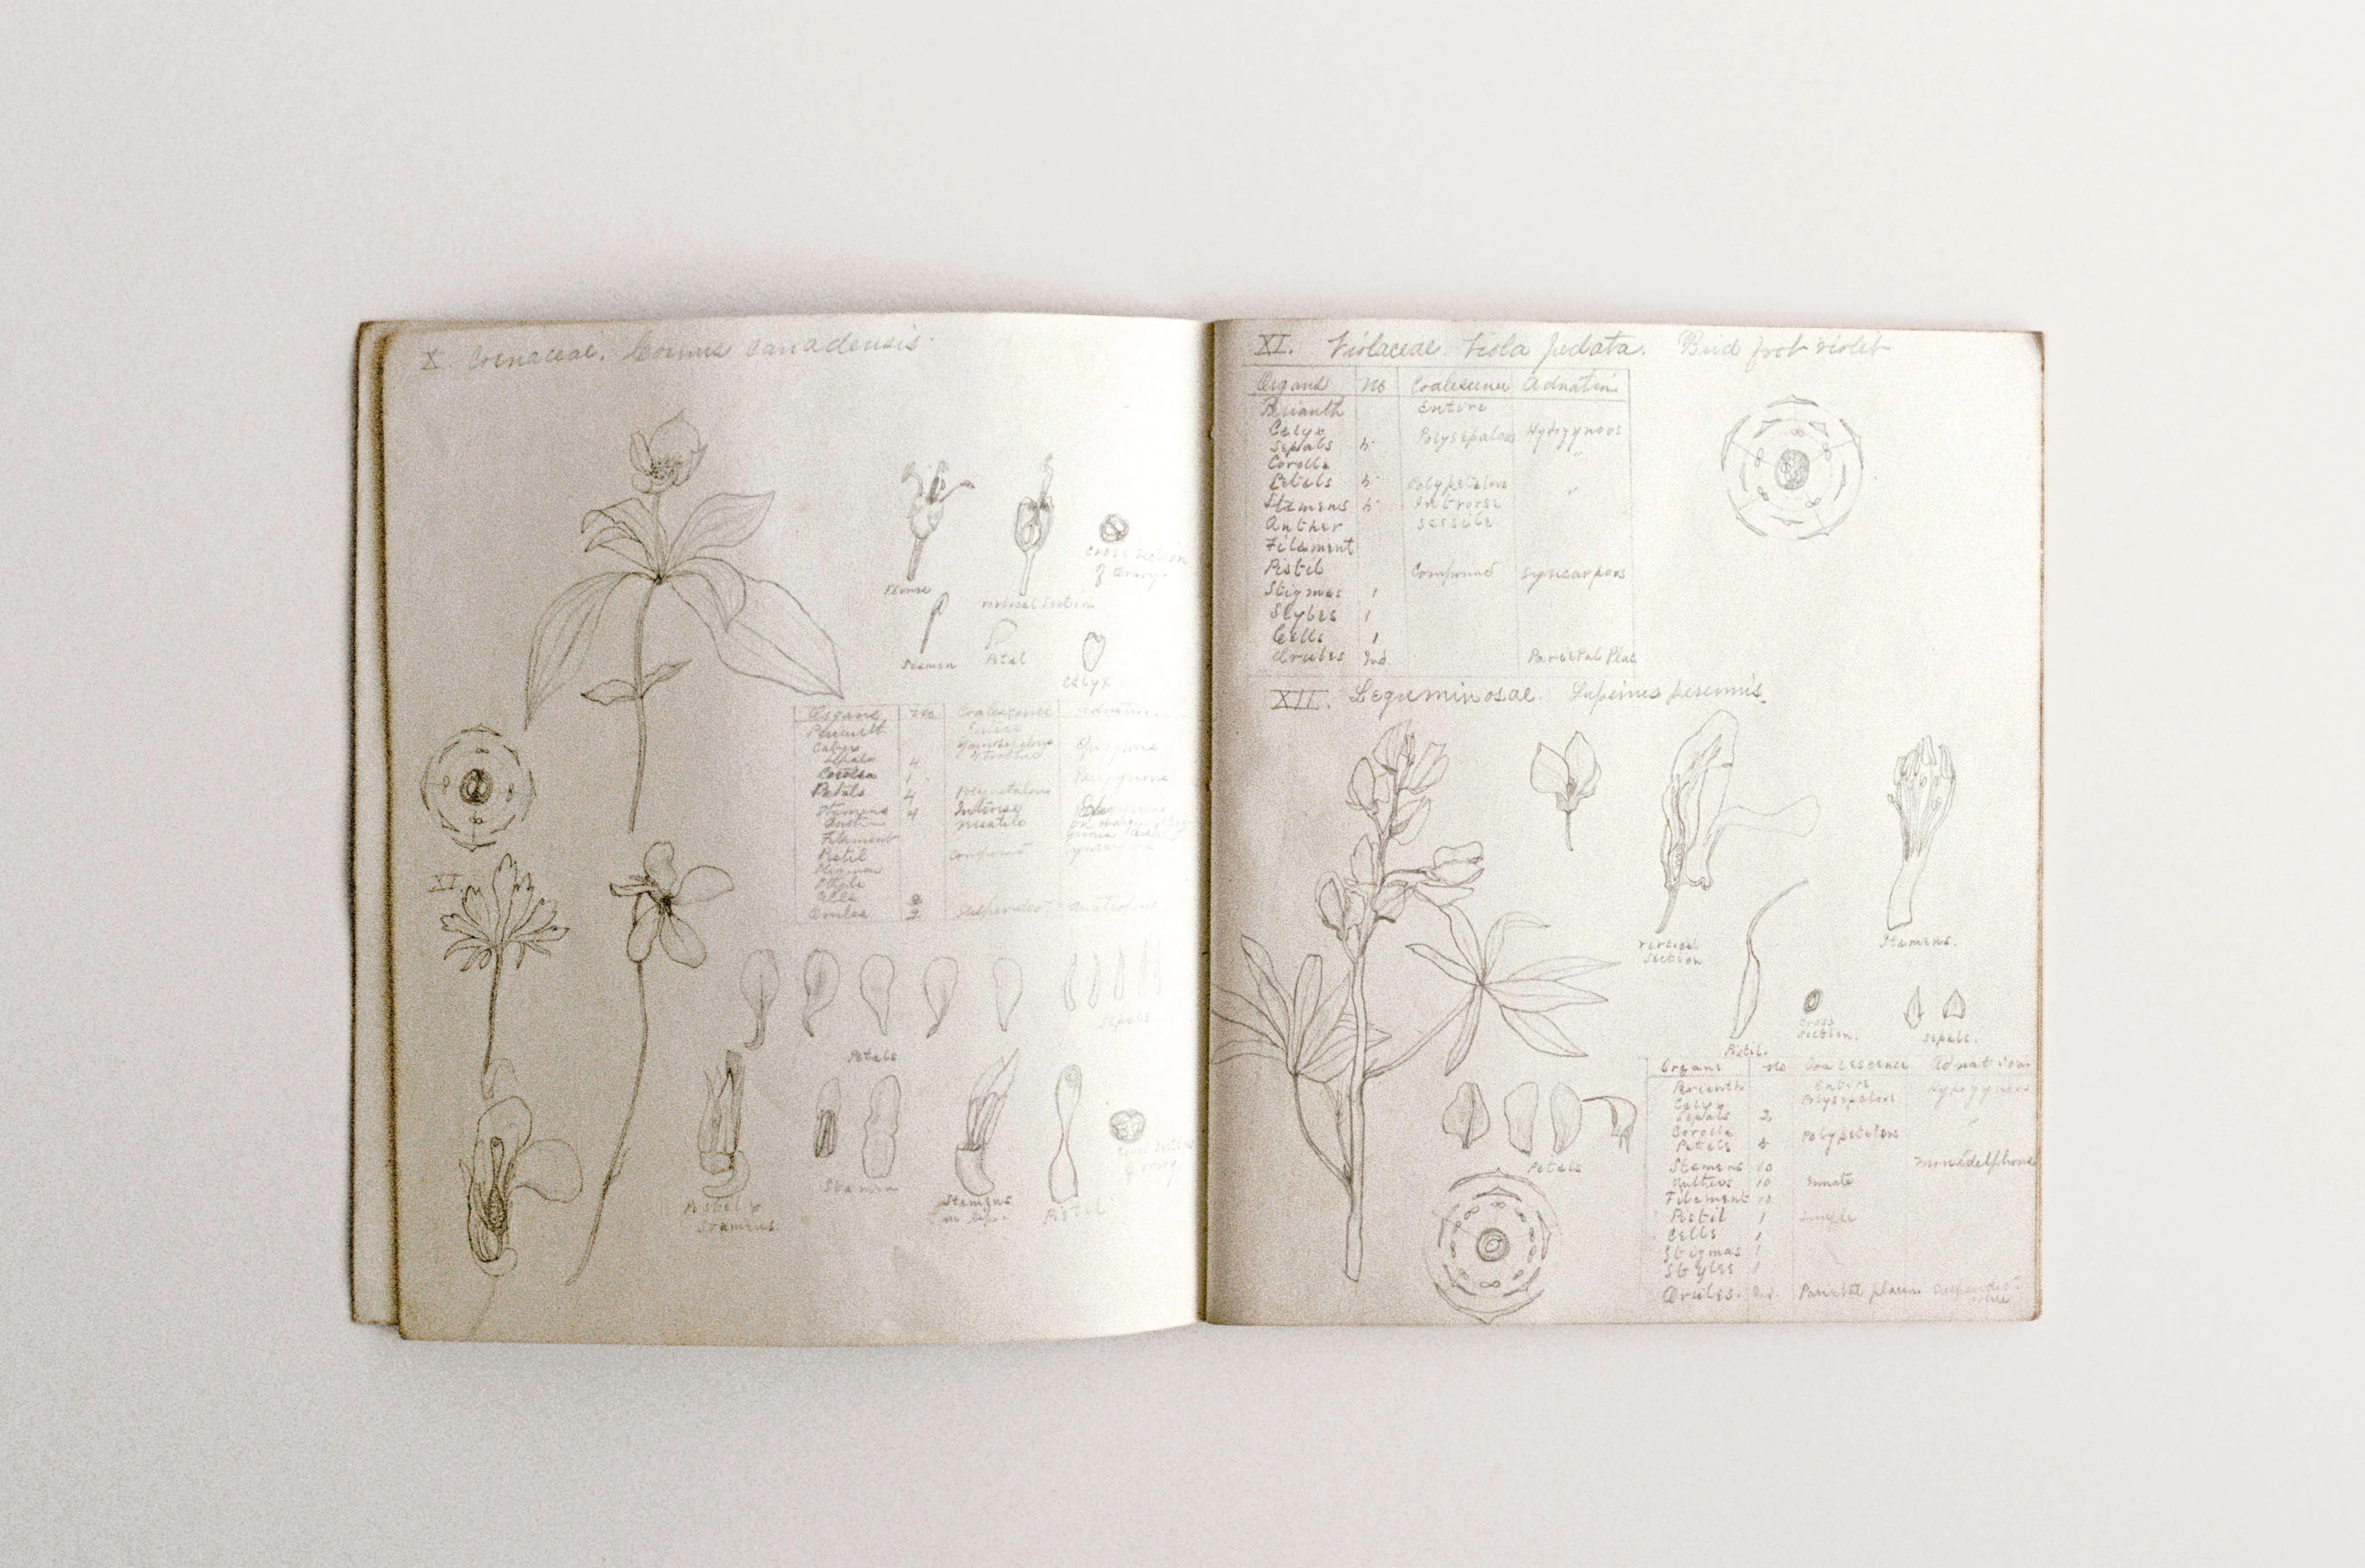 X. Cornaceae. Cornus Canadensis.
Flower
vertical section
Cross section
of Ovary.
Stamen
Petal
Calyx
Organs No. Coalescence Adnation.
Perianth Entire
Calyx gamosepalous
Sepals 4
Corolla 1
Petals 4 Polypetalous
Stamens 4 Introrse
Anther
Filament
Pistil Compound
Stigmas
Style
Cells 2
Ovules 2 Suspended
XI.
Petals
Sepals.
Pistil &
Stamens.
Stamen
Stamens
Pistil
of ovary.
XI. Violaceae Viola pedata. Bird foot violet
Organs No Coalescence Adnation
Perianth Entire
Calyx
Sepals 5 Polysepalous Hypogynous
Corolla "
Petals 5 Polypetalous "
Stamens 5 Introrse
Anther sessile
Filament
Pistil Compound Syncarpous
Stigmas 1
Styles 1
Cells 1
Ovules Ind. Parietal Plac
XII. Leguminosae. Lupinus perennis.
vertical
section
Stamens.
Pistil.
Cross
Section.
Sepals.
Petals
Organs No Coalescence Adnation
Perianth Entire Hypogynous
Calyx Polysepalous
Sepals 2
Corolla "
Petals 5 Polypetalous
Stamens 10 monadelphous
Anthers 10 Innate
Filament 10
Pistil 1 Simple
Cells 1
Stigmas 1
Styles 1
Ovules. Ind. Parietal placen.